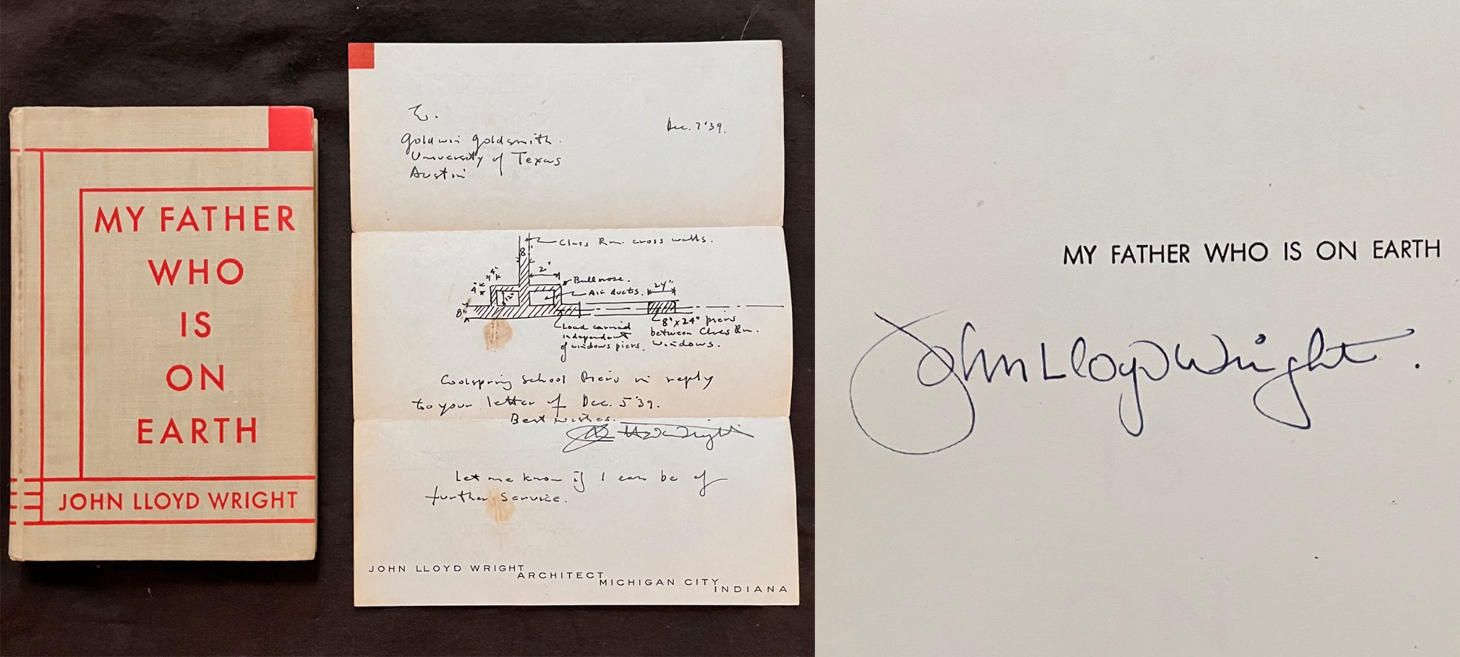 MY FATHER
WHO
IS
ON
EARTH
JOHN LLOYD WRIGHT
Dec. 7 '39.
Goldwin Goldsmith.
University of Texas
Austin
Class Rm. cross walls.
8"
4"
2"
4"
12"
8"
Bullnose.
Air ducts.
24"
Load carried
independent
of windows piers.
8" x 24" piers
between Class Rm.
windows.
Coolspring School Piers in reply
to your letter of Dec. 5 '39.
Best wishes.
Let me know if I can be of
further service.
JOHN LLOYD WRIGHT
ARCHITECT
MICHIGAN CITY
INDIANA
MY FATHER WHO IS ON EARTH
John Lloyd Wright.